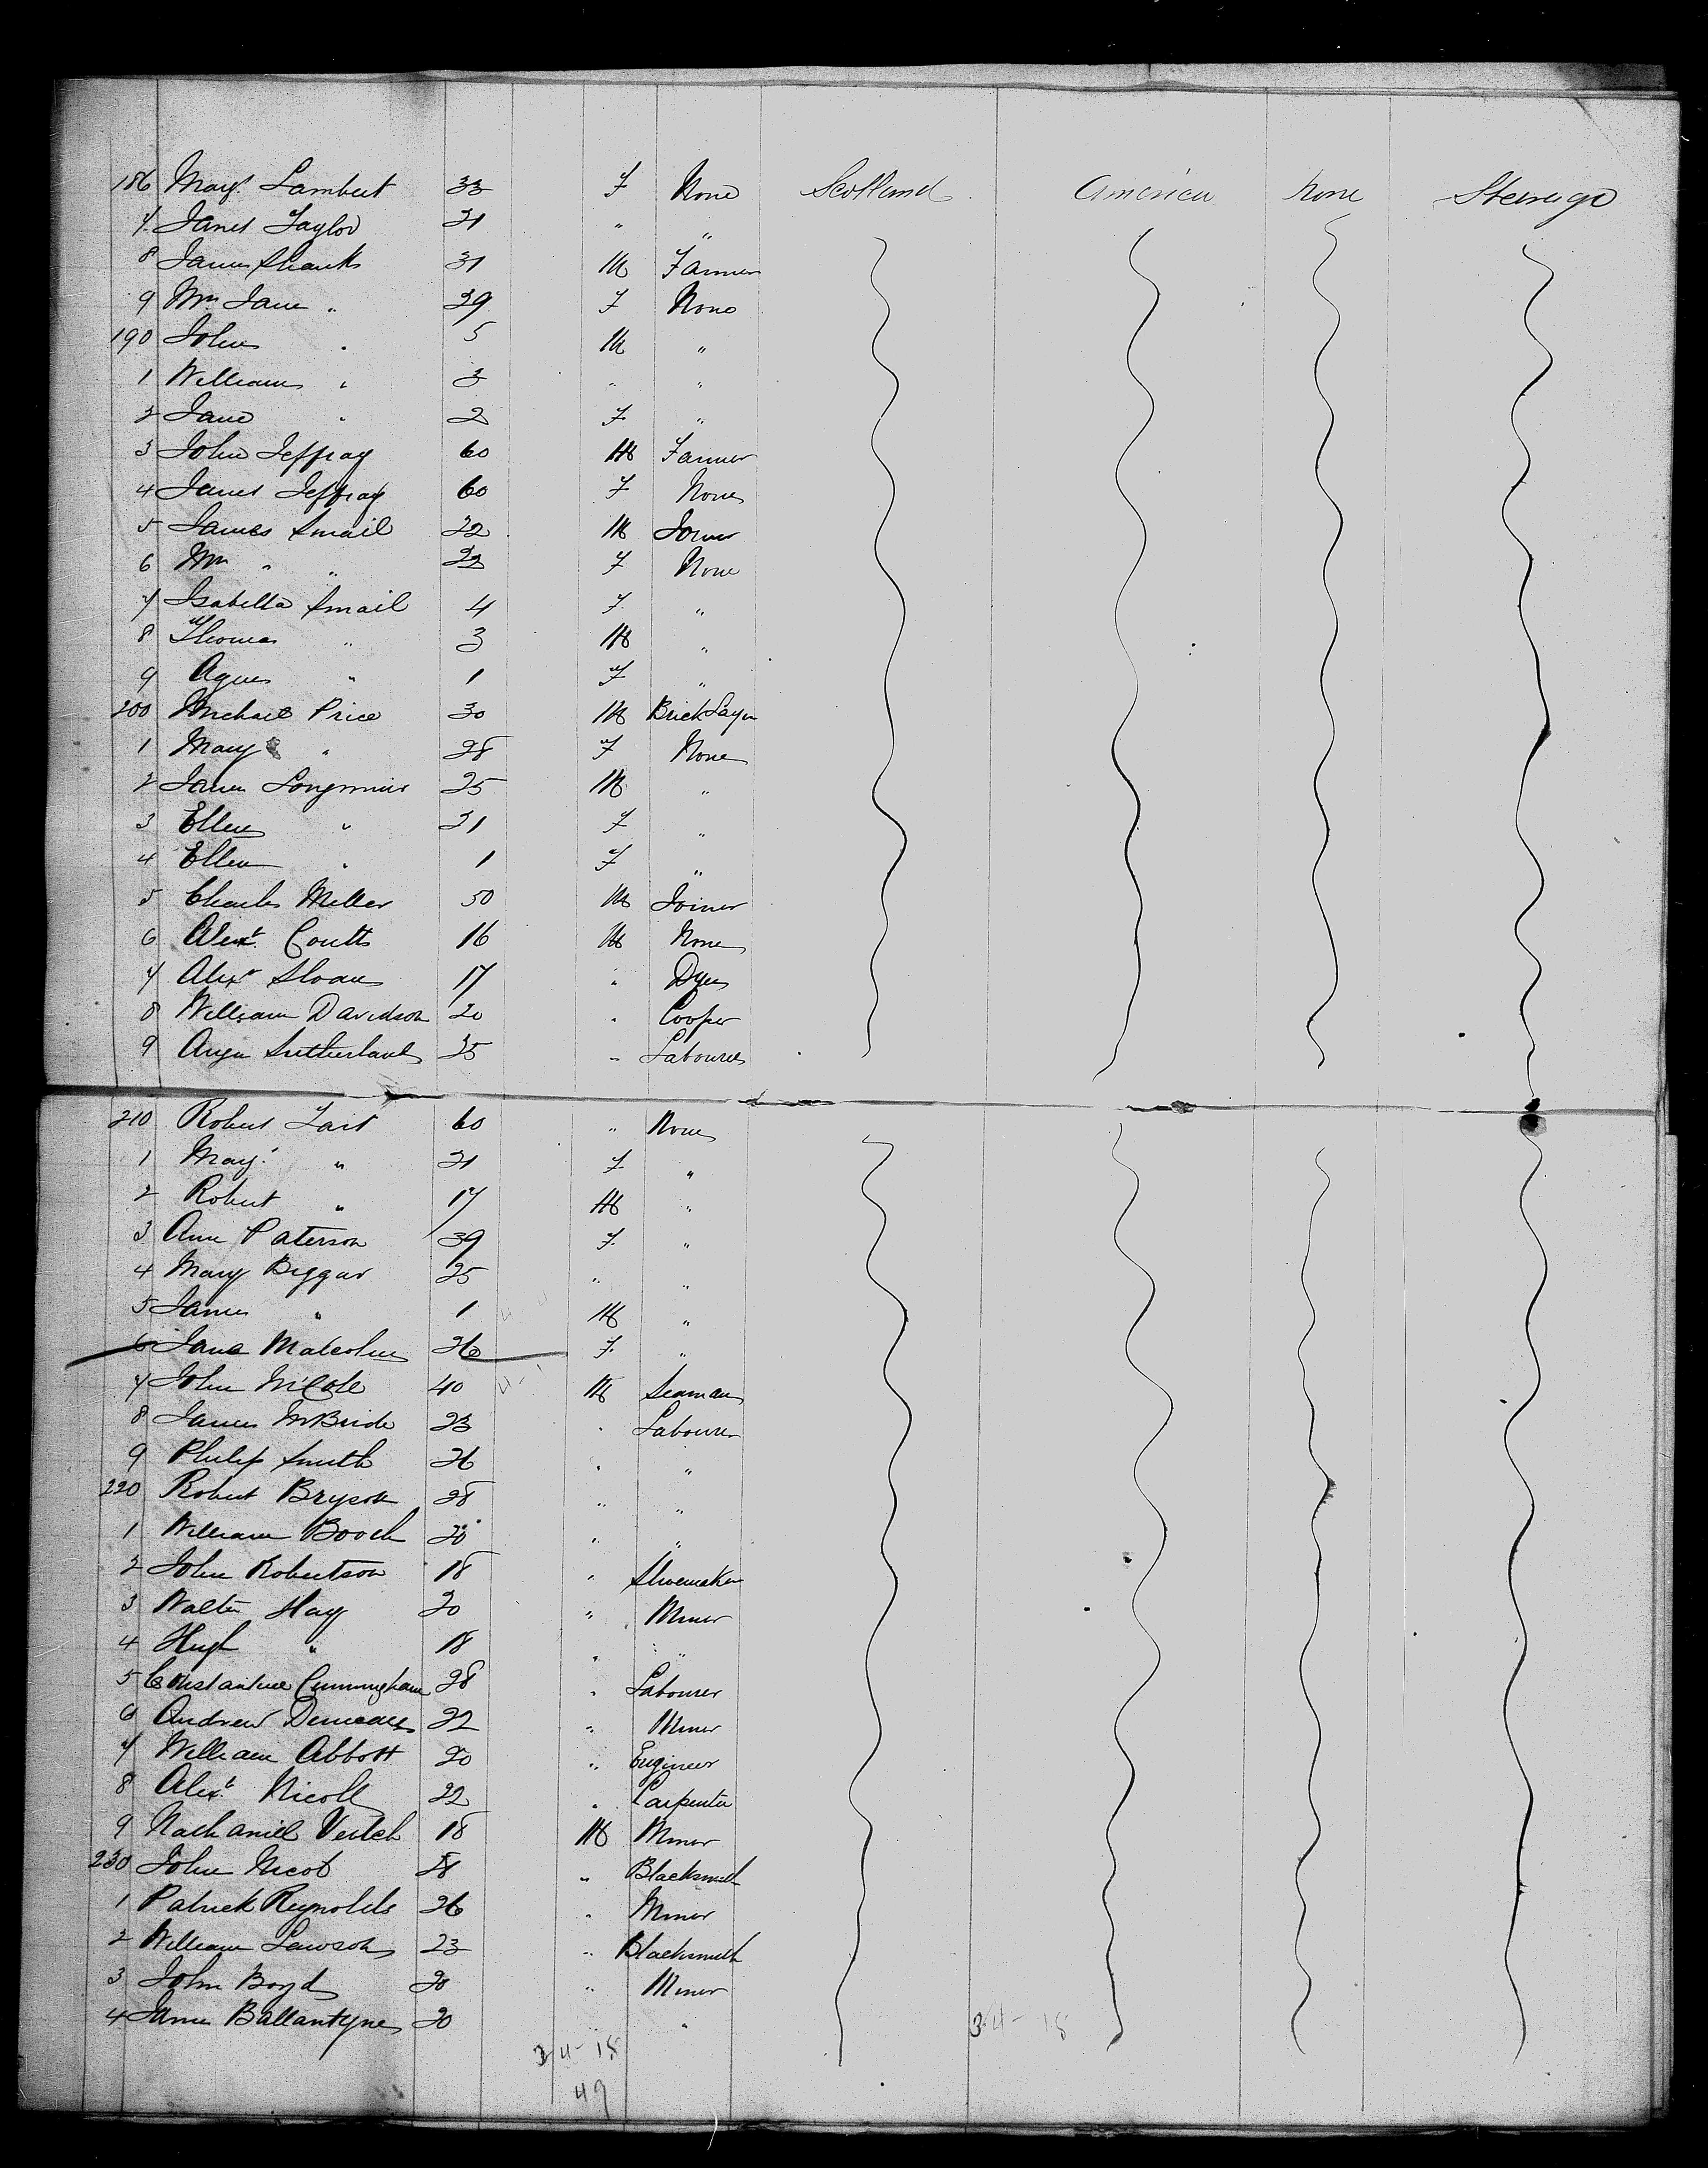 186 Magt. Lambert 33 F None Scotland America None Steerage
7 Janet Taylor 21 " "
8 James Shanks 31 M Farmer
9 Mrs Jane " 39 F None
190 John " 5 M "
1 William " 3 " "
2 Jane " 2 F "
3 John Jeffray 60 M Farmer
4 Janet Jeffray 60 F None
5 James Smail 32 M Joiner
6 Mrs " " 22 F None
7 Isabella Smail 4 F "
8 Thomas " 3 M "
9 Agnes " 1 F "
200 Michael Price 30 M Brick Layer
1 Mary " 28 F None
2 James Longmuir 25 M "
3 Ellen " 21 F "
4 Ellen " 1 F "
5 Charles Miller 50 M Joiner
6 Alexr. Coutts 16 M None
7 Alexr Sloan 17 " Dyer
8 William Davidson 20 " Cooper
9 Angus Sutherland 35 " Labourer
210 Robert Tait 60 " None
1 Magt. " 21 F "
2 Robert " 17 M "
3 Ann Paterson 39 F "
4 Mary Biggar 25 " "
5 James " 1 M "
6 Jane Malcolm 26 F "
7 John McCole 40 M Seaman
8 James McBride 23 " Labourer
9 Philip Smith 26 " "
220 Robert Bryson 28 " "
1 William Booch 20 " "
2 John Robertson 18 " Shoemaker
3 Walter Hay 20 " Miner
4 Hugh " 18 " "
5 Constantine Cunningham 28 " Labourer
6 Andrew 22 " Miner
7 William Abbott 20 " Engineer
8 Alexr. Nicoll 22 " Carpenter
9 Nathaniel Veitch 18 M Miner
230 John Nicol " Blacksmith
1 Patrick Reynolds 26 " Miner
2 William Lawson 23 " Blacksmith
3 John Boyd 20 " Miner
4 James Ballantyne 20 "
34-18
34-18
49